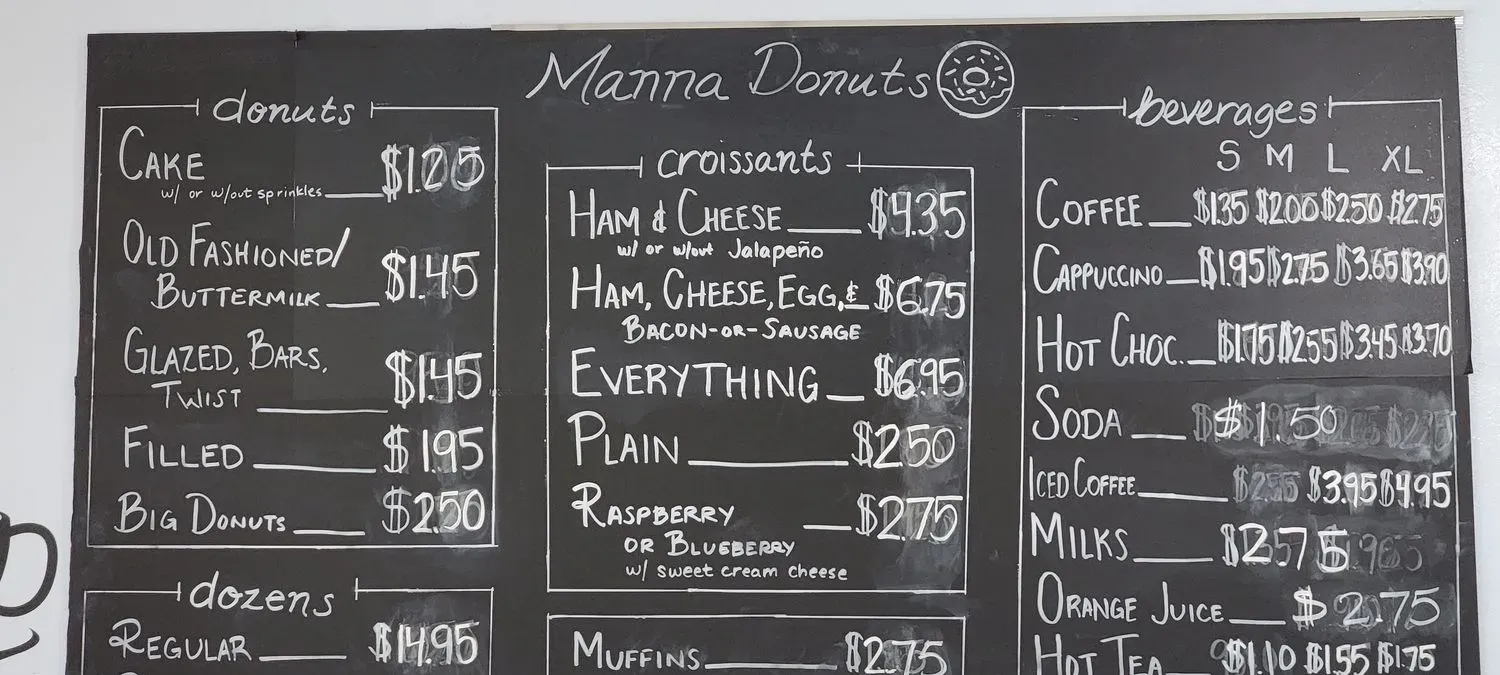 Manna Donuts
donuts
CAKE $1.25
w/ or w/out sprinkles
OLD FASHIONED/
BUTTERMILK $1.45
GLAZED, BARS,
TWIST $1.45
FILLED $1.95
BIG DONUTS $2.50
dozens
REGULAR $14.95
croissants
HAM & CHEESE $4.35
w/ or w/out Jalapeño
HAM, CHEESE, EGG, & $6.75
BACON-OR-SAUSAGE
EVERYTHING $6.95
PLAIN $2.50
RASPBERRY $2.75
OR BLUEBERRY
w/ sweet cream cheese
MUFFINS $2.75
beverages
S M L XL
COFFEE $1.35 $2.00 $2.50 $2.75
CAPPUCCINO $1.95 $2.75 $3.65 $3.90
HOT CHOC. $1.75 $2.55 $3.45 $3.70
SODA $1.50
ICED COFFEE $3.95 $4.95
MILKS $2.75
ORANGE JUICE $2.75
HOT TEA $1.10 $1.55 $1.75